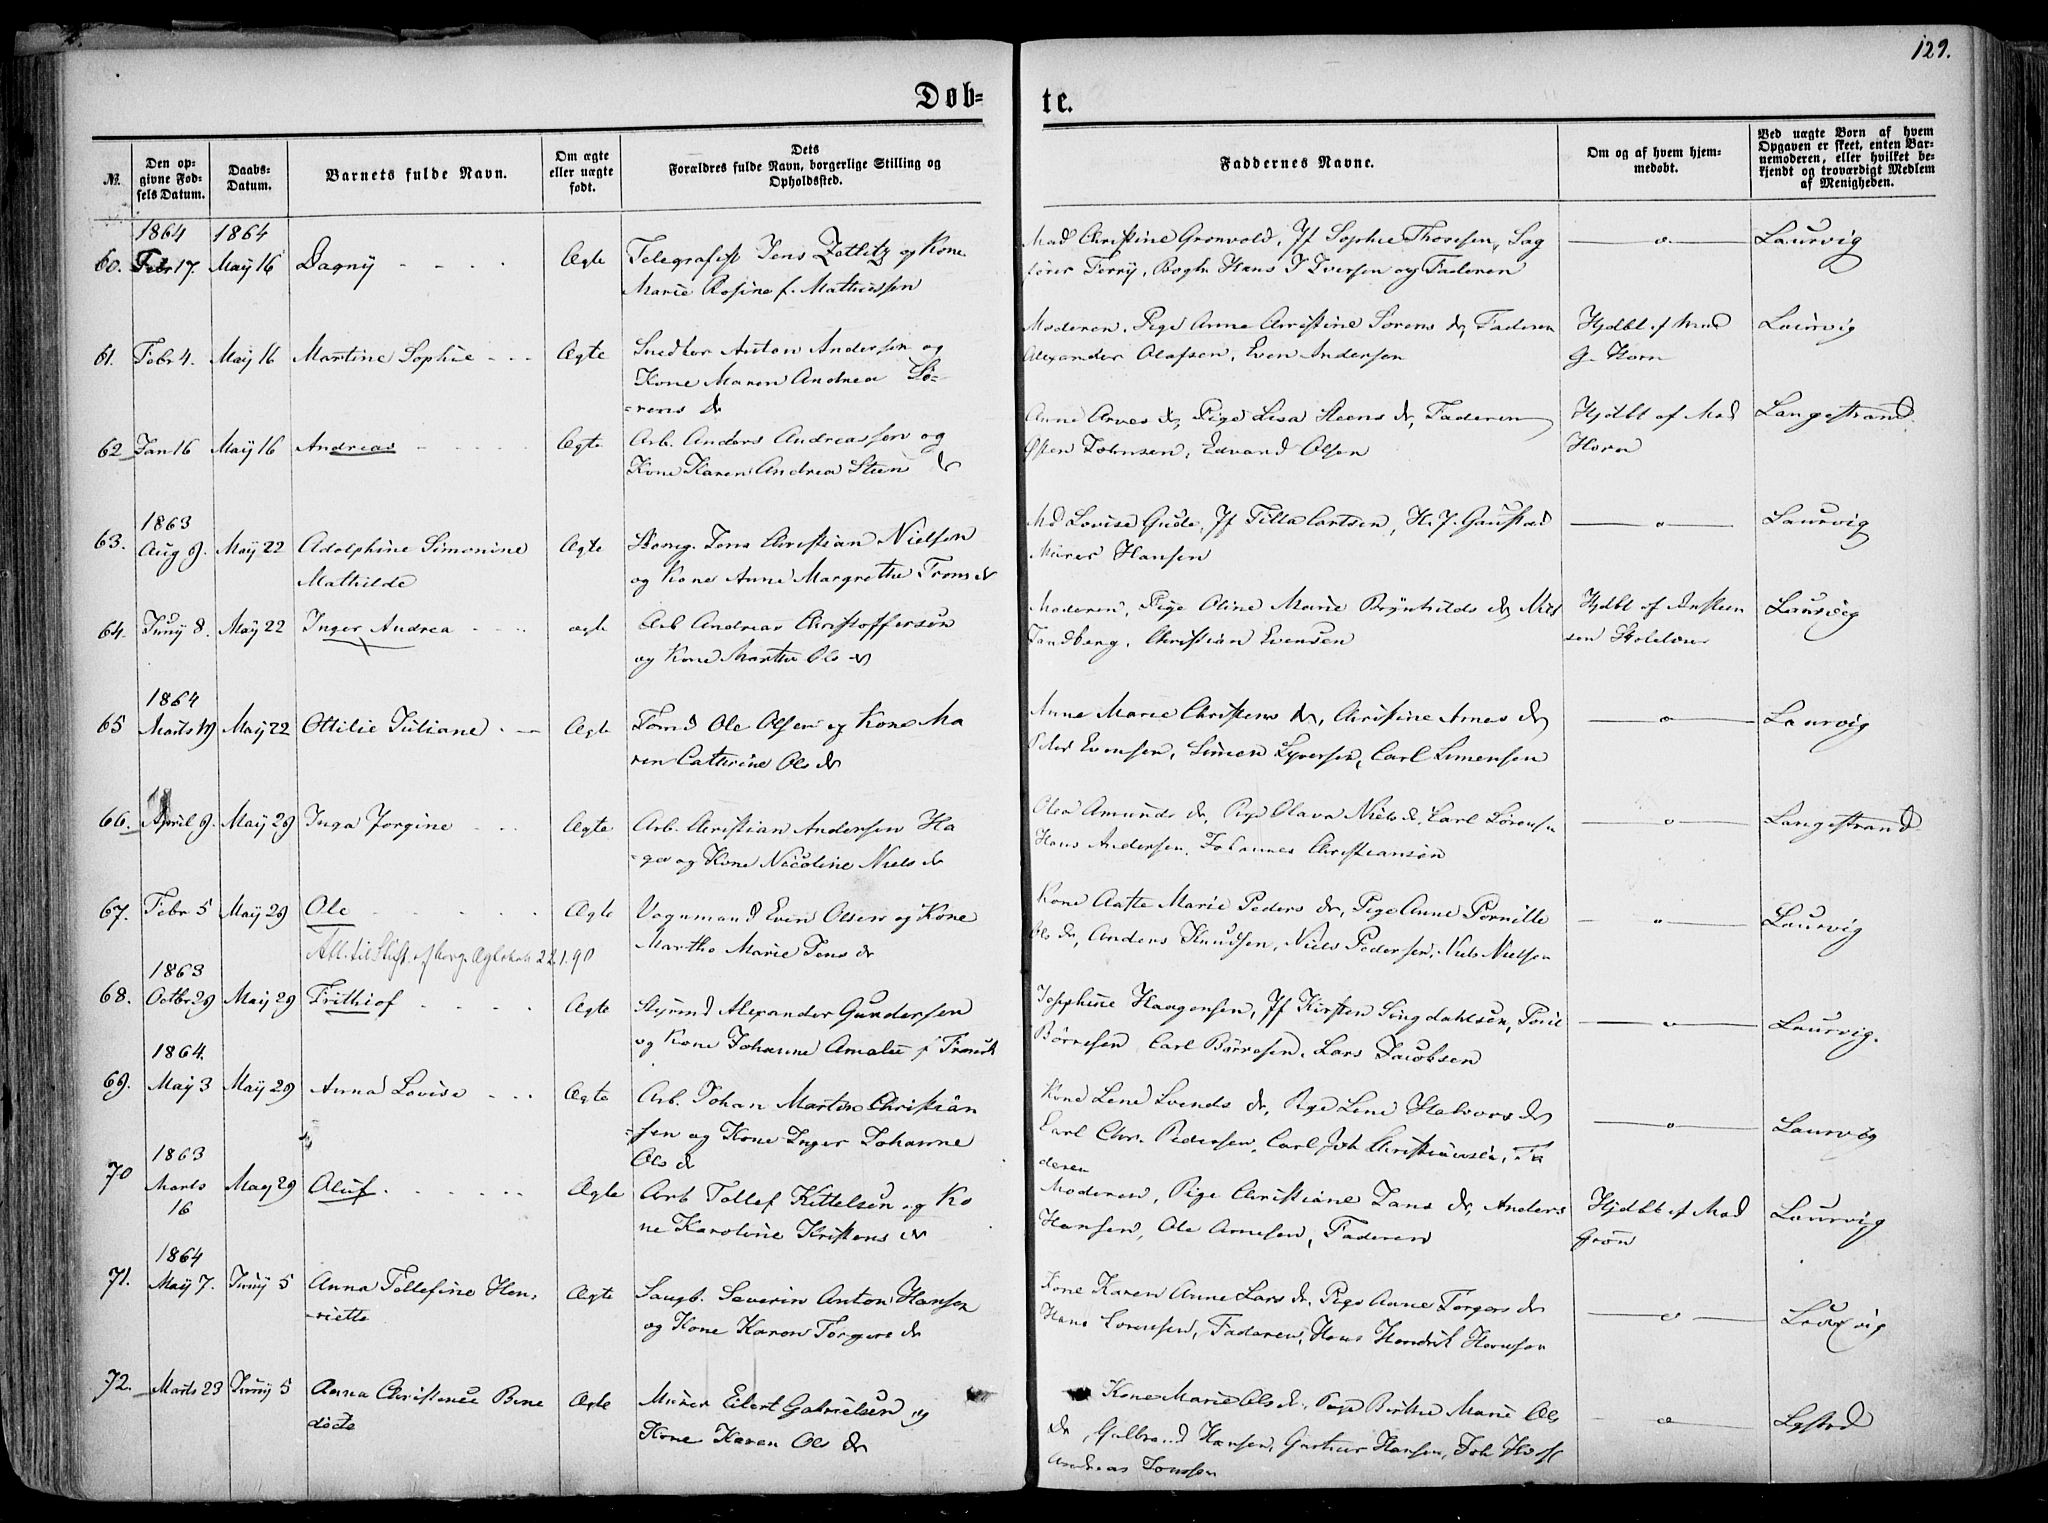 129.
Døb-
te.
№.
Den op-
givne Fød-
sels Datum.
Daabs-
Datum.
Barnets fulde Navn.
Om ægte
eller uægte
født.
Dets
Forældres fulde Navn, borgerlige Stilling og
Opholdssted.
Faddernes Navne.
Om og af hvem hjem-
medøbt.
Ved uægte Børn af hvem
Opgaven er skeet, enten Bar-
nemoderen, eller hvilket be-
kjendt og troværdigt Medlem
af Menigheden.
1864 1864
60. Febr 17. May 16 Dagny Ægte Telegrafist Jens Zetlitz og Kone
Marie Rosine f. Mathiessen
Mad Christine Grønvold, Jf Sophie Thoresen, Sag
fører Ferry, Bogh. Hans J Iversen og Faderen
Laurvig
61. Febr 4. May 16 Martine Sophie Ægte Snedker Anton Andersen og
Kone Maren Andrea Sö-
rens dr
Moderen, Pige Anne Christine Sorens dr, Faderen
Alexander Olafsen, Even Andersen
Hjdbt af Mad
G. Horn
Laurvig
62 Jan 16 May 16 Andreas Ægte Arb. Anders Andreassen og
Kone Karen Andrea Steens dr
Anne Arves dr, Pige Lisa Steens dr, Faderen
Østen Johnsen, Edvard Olsen
Hjdbt af Mad
Horn
Langestrand.
1863
63. Aug 9. May 22 Adolphine Simonine
Mathilde
Ægte Jens Christian Nielsen
og Kone Anne Margrethe Frons dr
Md Lovise Gude, Jf Tilla Cartsen, H. J. Gaustad
Murer Hansen
Laurvig
64. Juny 8. May 22 Inger Andrea ægte Arb Andreas Christoffersen
og Kone Marthe Ols dr
Moderen, Pige Oline Marie Brynhilds dr, Niels
Sandberg, Christian Evensen
Hjdbt af
Laurvig
1864
65 Marts 19 May 22 Ottilie Juliane Ægte Tømd Ole Olsen og Kone Ma
ren Cathrine Ols dr
Anne Marie Christens dr, Christine Arnes dr
Peder Evensen, Simen Syversen, Carl Simensen
Laurvig
66. April 9. May 29 Inga Jorgine Ægte Arb. Christian Andersen Ha
ga og Kone Nicoline Niels dr
Olea Amunds dr, Pige Olava Niels dr, Carl Sörensen
Hans Andersen, Johannes Christiansen
Langestrand
67. Febr 5 May 29 Ole Ægte Vognmand Even Olsen og Kone
Marthe Marie Jens dr
Att. til Stift. af borg. Ægteskab 22.1.90
Kone Aaste Marie Peders dr, Pige Anne Pernille
Ols dr, Anders Knudsen, Niels Pedersen, Niels Nielsen
Laurvig
1863
68. Octbr 29 May 29 Frithiof Ægte Styrmd Alexander Gundersen
og Kone Johanne Amalie f Frantz
Josephine Haagensen, Jf Kirsten Lingdahlsen,
Börresen Carl Börresen, Lars Jacobsen
Laurvig.
1864.
69. May 3 May 29 Anna Lovise Ægte Arb. Johan Martin Christian
sen og Kone Inger Johanne
Ols dr
Kone Lene Svends dr, Pige Lene Halvors dr
Carl Chr. Pedersen, Carl Joh Christiansen, Fa
deren
Laurvig
1863
70 Marts
16
May 29 Oluf Ægte Arb Tollef Kittelsen og Ko
ne Karoline Kristens dr
Moderen, Pige Christiane Jans dr, Anders
Hansen, Ole Arnesen, Faderen
Hjdbt af Mad
Grøn
Laurvig
1864
71. May 7. Juny 5 Anna Tollefine Hen-
riette
Ægte Saugb. Severin Anton Hansen
og Kone Karen Torgers dr
Kone Karen Anne Lars dr, Pige Anne Torgers dr
Hans Sorensen, Faderen, Hans Hendrik Hansen
Laurvig
72. Marts 23 Juny 5 Anna Christence Bene
dicte
Ægte Murer Eilert Gabrielsen og
Kone Karen Ols dr
Kone Marie Ols dr, Pige Birthe Marie Ols
dr, Gulbrand Hansen, Hansen, Joh
Andreas Jonssen